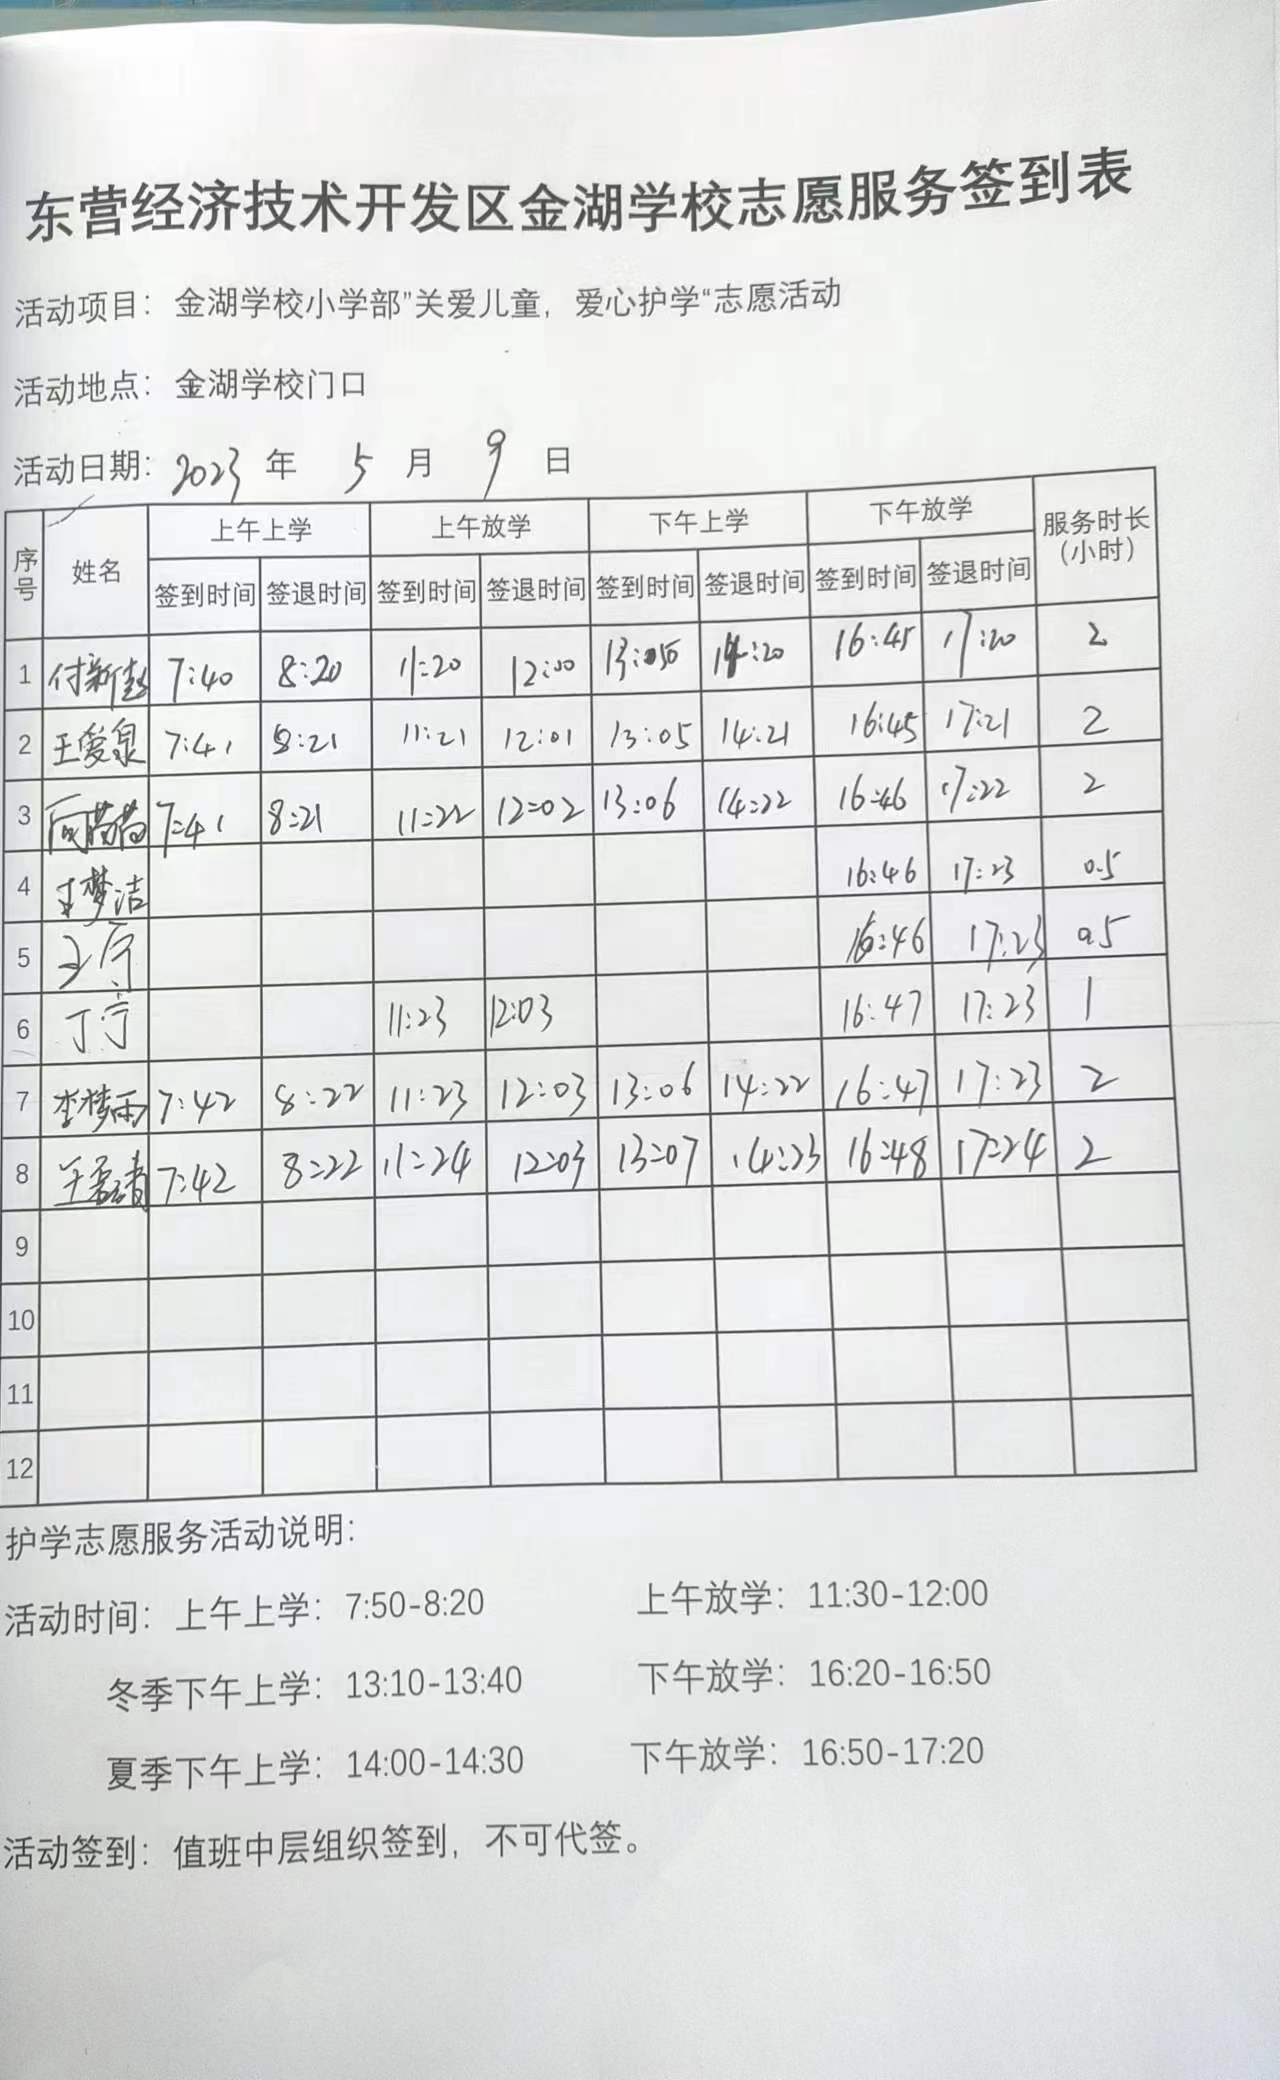 东营经济技术开发区金湖学校志愿服务签到表
活动项目：金湖学校小学部"关爱儿童，爱心护学"志愿活动
活动地点：金湖学校门口
活动日期：2023 年 5 月 9 日
序号 姓名 上午上学 上午放学 下午上学 下午放学 服务时长（小时）
签到时间 签退时间 签到时间 签退时间 签到时间 签退时间 签到时间 签退时间
1 7:40 8:20 11:20 12:00 14:20 16:45 17:20 2
2 王爱泉 7:41 8:21 11:21 12:01 13:05 14:21 16:45 17:21 2
3 7:41 8:21 11:22 12:02 13:06 14:22 16:46 17:22 2
4 王梦洁 16:46 17:23 0.5
5 王宁 16:46 17:23 0.5
6 丁宁 11:23 12:03 16:47 17:23 1
7 李梦雨 7:42 8:22 11:23 12:03 13:06 14:22 16:47 17:23 2
8 7:42 8:22 11:24 12:03 13:07 14:23 16:48 17:24 2
9
10
11
12
护学志愿服务活动说明：
活动时间：上午上学：7:50-8:20 上午放学：11:30-12:00
冬季下午上学：13:10-13:40 下午放学：16:20-16:50
夏季下午上学：14:00-14:30 下午放学：16:50-17:20
活动签到：值班中层组织签到，不可代签。